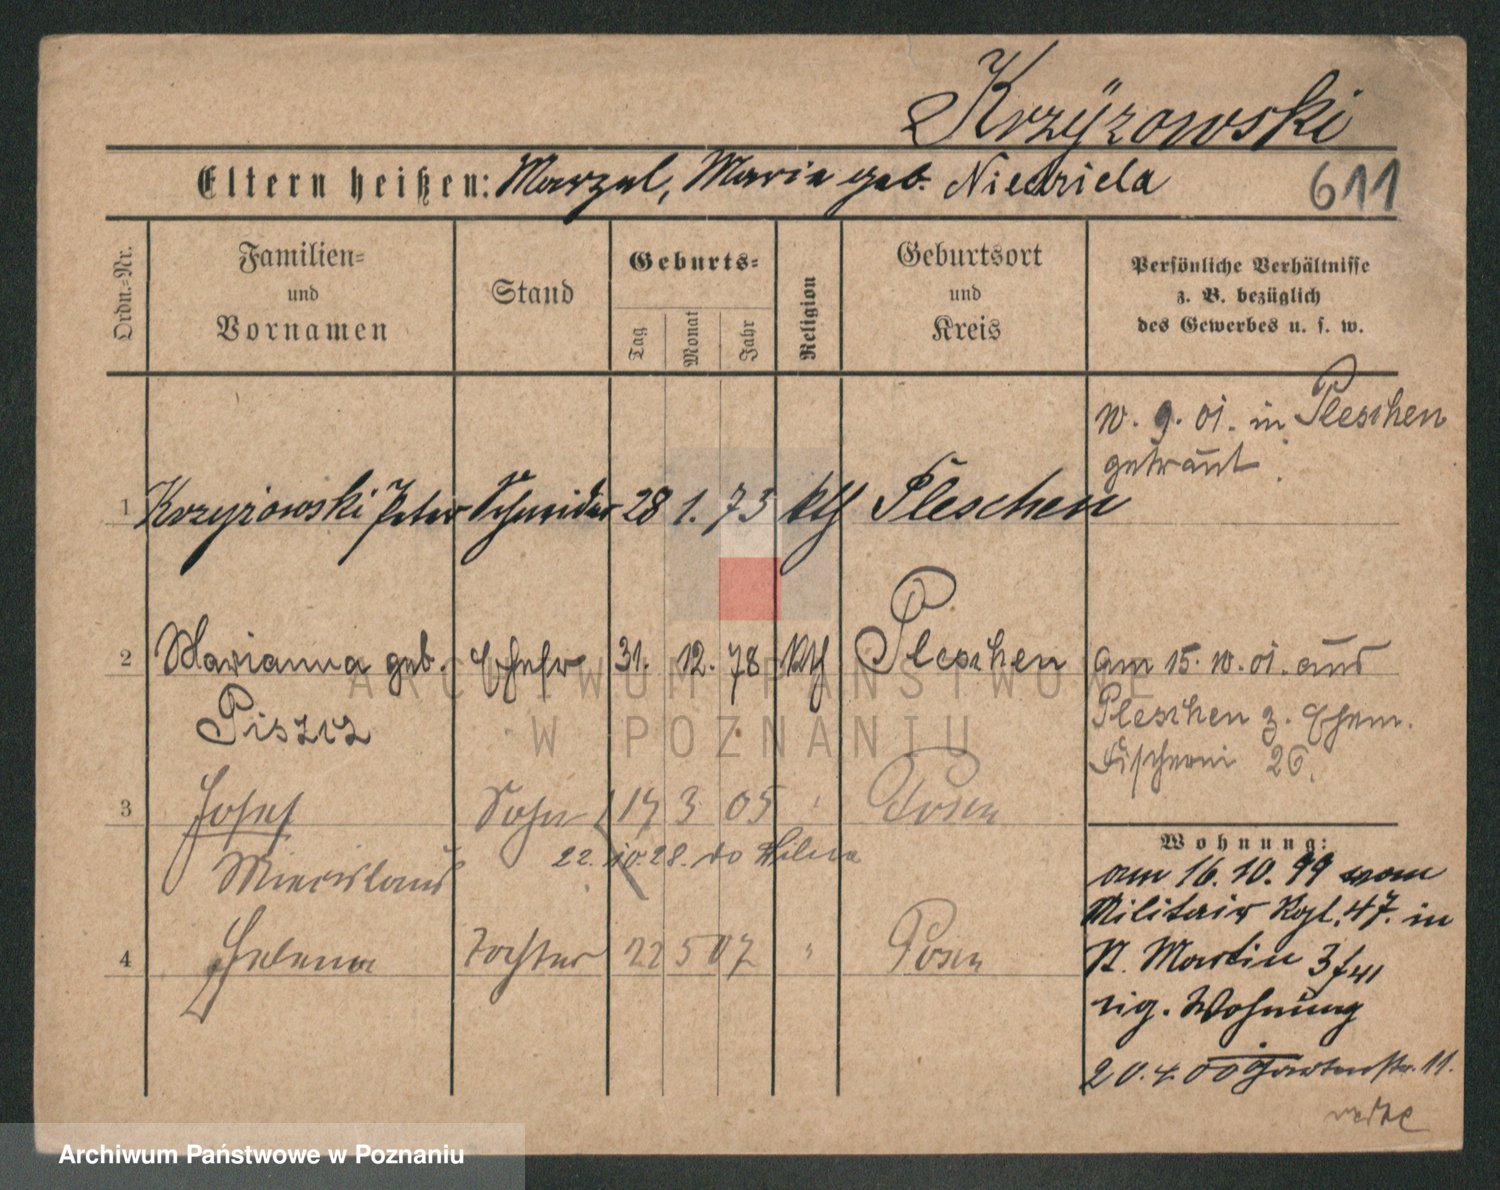 Krzyżowski
Eltern heißen: Marzel, Maria geb.
611
Ordn.-Nr.
Familien-
und
Vornamen
Stand
Geburts-
Tag
Monat
Jahr
Religion
Geburtsort
und
Kreis
Persönliche Verhältnisse
z. B. bezüglich
des Gewerbes u. s. w.
10. 9. 01. in Pleschen
getraut.
1 Krzyżowski Peter Schneider 28 1. 73 kth Pleschen
2 Marianna geb. Ehefr 31. 12. 78 kth Pleschen
Piszcz
am 15. 10. 01. aus
Pleschen z. Ehem.
Fischerei 26.
3 Josef Sohn 17 3 05 " Posen
22. 10. 28. do Wilna
Miecislaus
4 Helena Tochter 22 5 07 " Posen
Wohnung:
am 16. 10. 99 vom
Militair Rgt. 47. in
St. Martin 3
eig. Wohnung
20. 4. 00 Gartenstr. 11.
ARCHIWUM PAŃSTWOWE
W POZNANIU
Archiwum Państwowe w Poznaniu